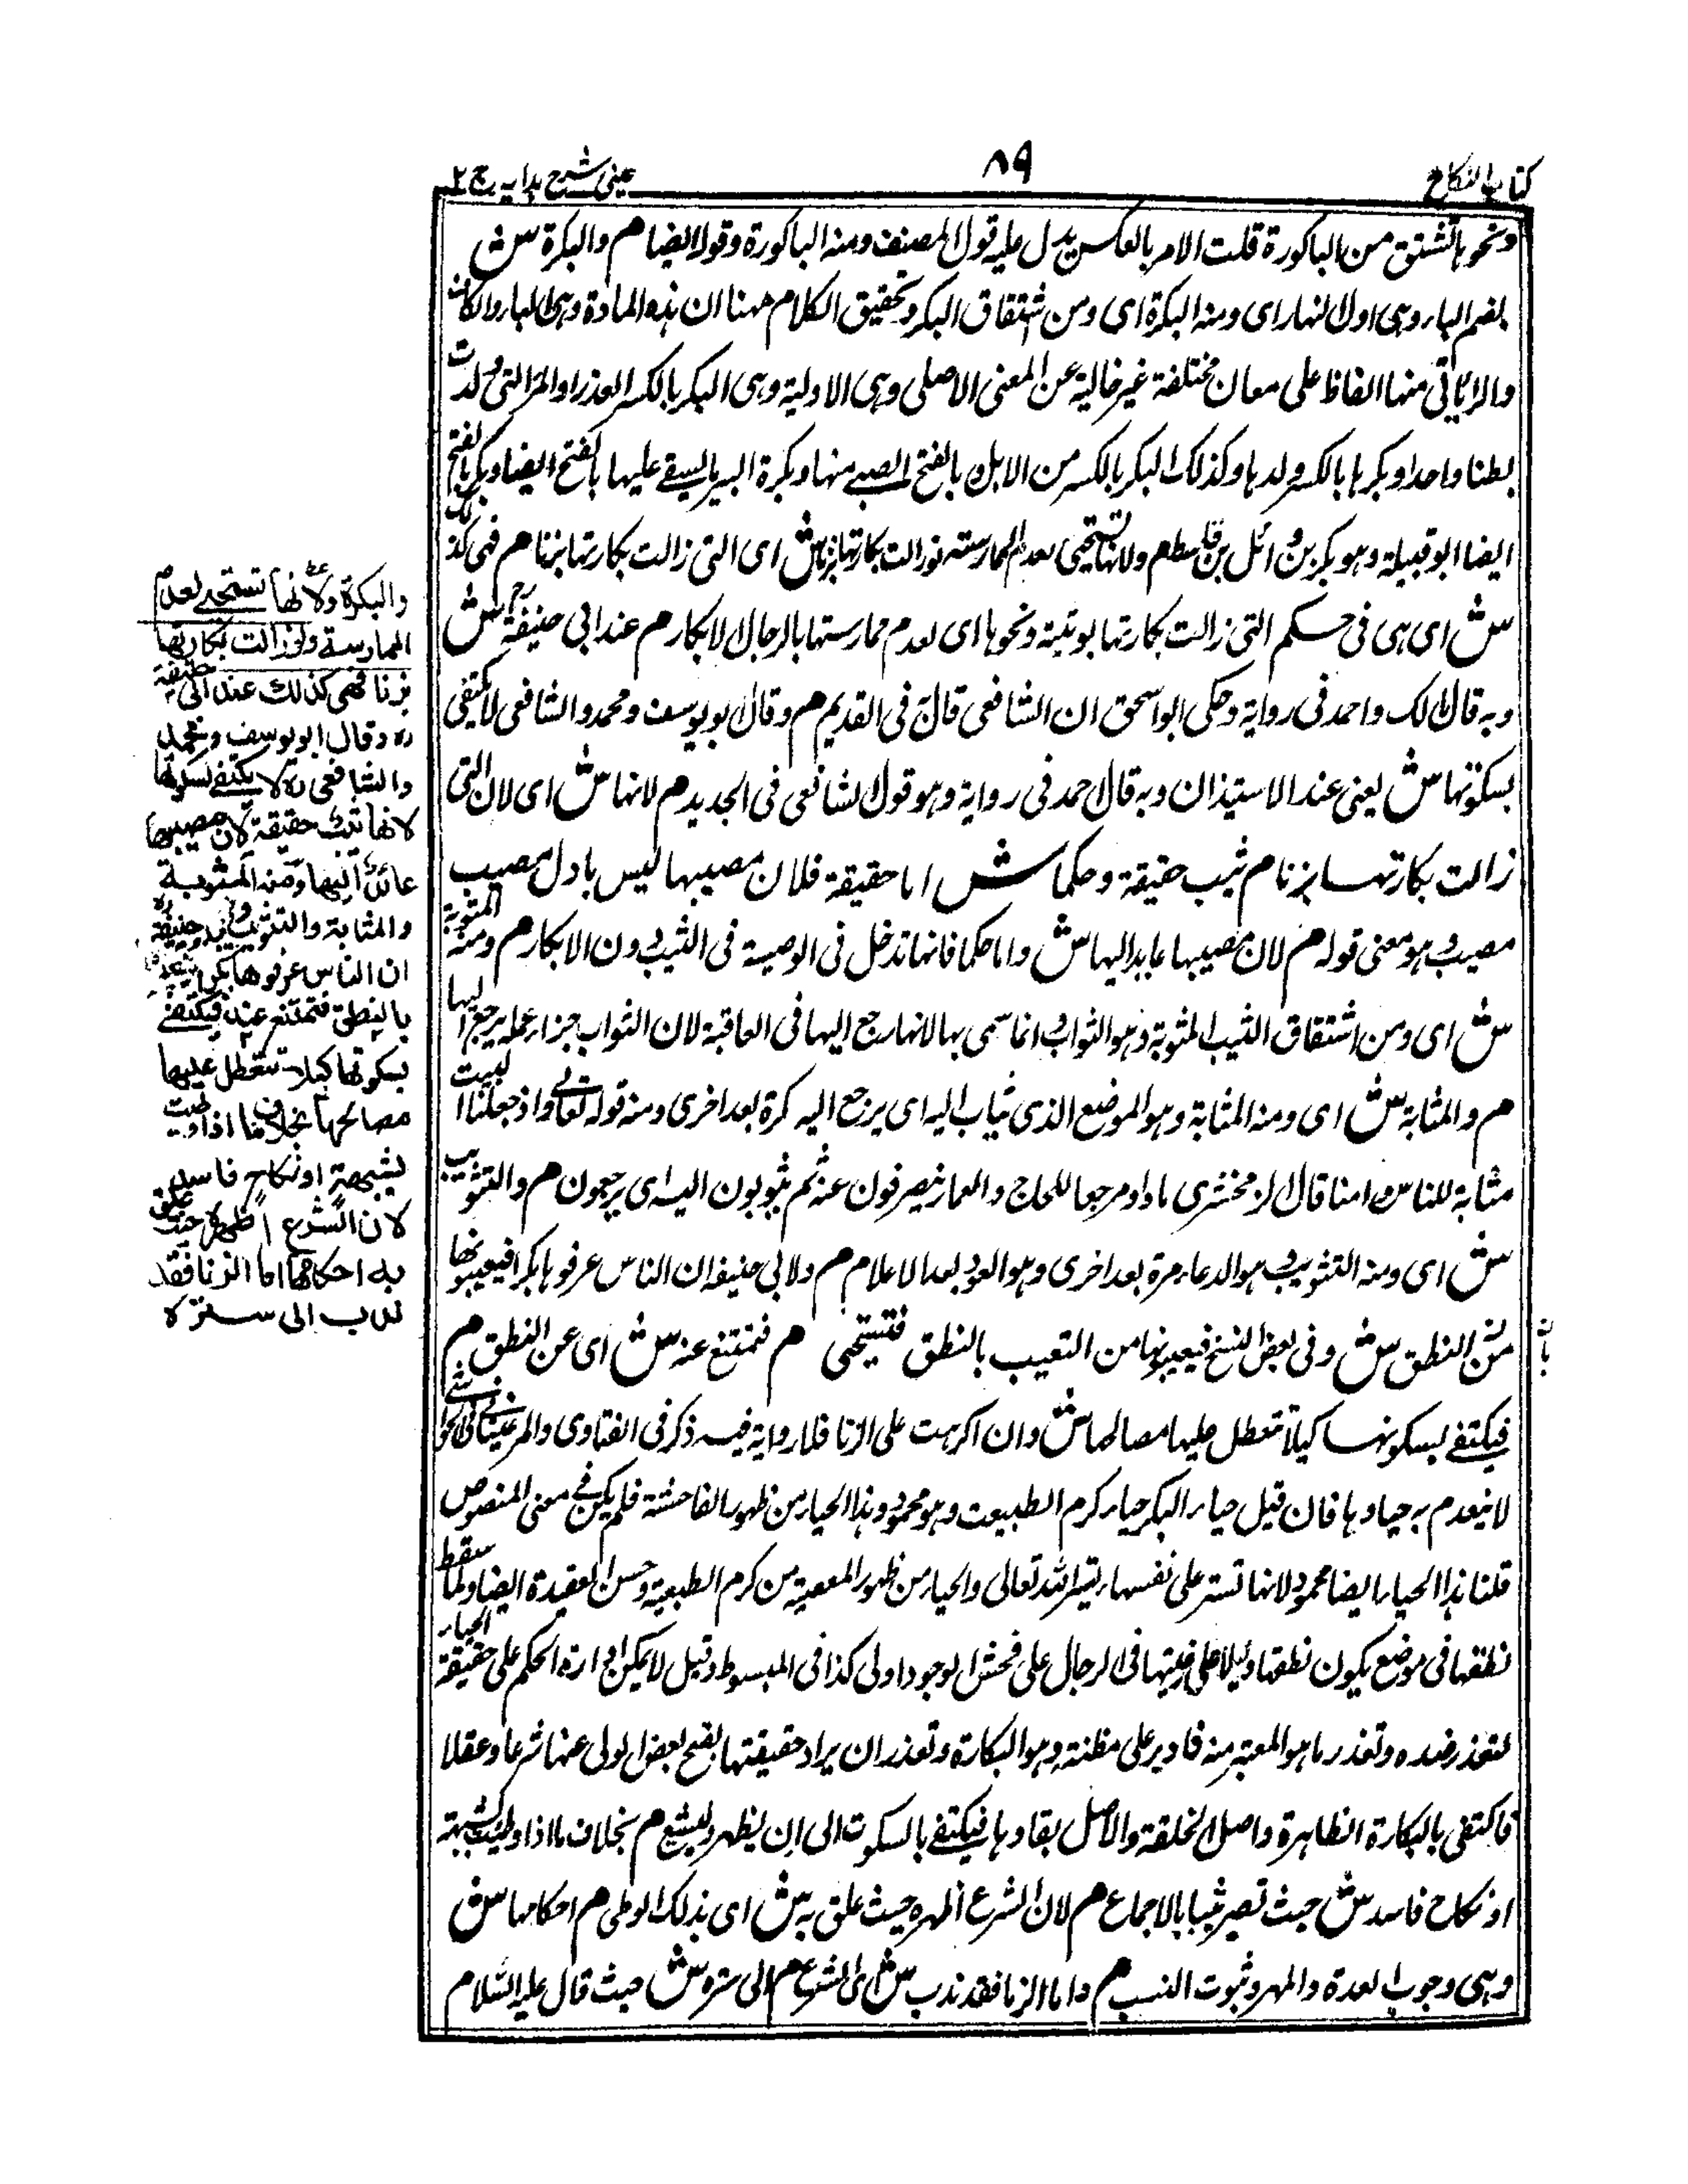 كتاب النكاح
٨٩
عينى شرح هدايه ج ٢
ونحوها تشتق من الباكورة قلت الامر بالعكس يدل عليه قول المصنف ومنه الباكورة وقوله ايضا هم والبكرة ش
بضم الباء وهى اول النهار اى ومنه البكرة اى ومن اشتقاق البكر وتحقيق الكلام ههنا ان هذه المادة وهى الباء والكاف
والراء ياتى منها الفاظ على معان مختلفة غير خالية عن المعنى الاصلى وهى الاولية وهى البكر بالكسر العذراء والمراة التى ولدت
بطنا واحدا وبكرها بالكسر ولدها وكذلك البكر بالكسر من الابل و بالفتح الصبى منها وبكرة البير ما يستقى عليها بالفتح ايضا وبكر بالفتح
ايضا ابو قبيلة وهو بكر بن وائل بن قاسط م ولانها تستحيى لعدم الممارسته ولو زالت بكارتها بزنا ش اى التى زالت بكارتها بزنا هم فهى كذلك
ش اى هى فى حكم التى زالت بكارتها بوثبة ونحوها اى لعدم ممارستها بالرجال لابكار م عند ابى حنيفة ش
وبه قال مالك واحمد فى رواية وحكى ابو اسحق ان الشافعى قاله فى القديم هم وقال ابو يوسف ومحمد والشافعى لا يكتفى
بسكوتها ش يعنى عند الاستيذان وبه قال احمد فى رواية وهو قول الشافعى فى الجديد م لانها ش اى لان التى
زالت بكارتها بزنا م ثيب حقيقة وحكما ش اما حقيقة فلان مصيبها ليس باول مصيب
مصيب وهو معنى قوله هم لان مصيبها عايد اليها ش واما حكما فانها تدخل فى الوصية فى الثيب دون الابكار هم ومنه المثوبة
ش اى ومن اشتقاق الثيب المثوبة وهو الثواب انما سمى بها لانها رجع اليها فى العاقبة لان الثواب جزاء عمله يرجع اليها
هم والمثابة ش اى ومنه المثابة وهو الموضع الذى يثاب اليه اى يرجع اليه كرة بعد اخرى ومنه قوله تعالى واذ جعلنا البيت
مثابة للناس وامنا قال الزمخشرى ماوا ومرجعا للحاج والعمار ينصرفون عنه ثم يثوبون اليه اى يرجعون هم والتثويب
ش اى ومنه التثويب وهو الدعاء مرة بعد اخرى وهو العود بعد الاعلام هم ولابى حنيفة ان الناس عرفوها بكرا فيعيبونها
من النطق ش وفى بعض النسخ فيعيبونها من التعييب بالنطق فتستحيى هم فتمتنع عنه ش اى عن النطق م
فيكتفى بسكوتها كيلا تتعطل عليها مصالحها ش وان اكرهت على الزنا فلا رواية فيه ذكر فى الفتاوى والمرغينانى
لا ينعدم به حياوها فان قيل حياء البكر حياء كرم الطبيعت وهو محمود وهذا الحياء من ظهور الفاحشة فلم يكن فى معنى المنصوص
قلنا هذا الحياء ايضا محمود لانها تستر على نفسها بستر الله تعالى والحياء من ظهور المعصية من كرم الطبيعة وحسن العقيدة ايضا ولما سقط
نطقها فى موضع يكون نطقها دليلا على رغبتها فى الرجال على فحش الوجود اولى كذا فى المبسوط وقيل لا يمكن ادارة الحكم على حقيقة الحياء
لتعذر ضده وتعذر ما هو المعتبر منه فادير على مظنته وهو البكارة وتعذر ان يراد حقيقتها لقبح بعض الولى عنها شرعا وعقلا
فاكتفى بالبكارة الظاهرة واصل الخلقة والاصل بقاوها فيكتفى بالسكوت الى ان يظهر وليشع م بخلاف ما اذا وطيت بشبهة
او نكاح فاسد ش حيث تصير ثيبا بالاجماع هم لان الشرع اظهره حيث علق به ش اى بذلك الوطى م احكامها ش
وهى وجوب العدة والمهر وثبوت النسب م واما الزنا فقد ندب ش اى الشرع م الى ستره ش حيث قال عليه السلام
والبكرة ولانها تستحيى لعدم
الممارسة ولو زالت بكارتها
بزنا فهى كذلك عند ابى حنيفة
ره وقال ابو يوسف ومحمد
والشافعى ره لا يكتفى بسكوتها
لانها ثيب حقيقة لان مصيبها
عائد اليها ومنه المثوبة
والمثابة والتثويب ولابى حنيفة
ان الناس عرفوها بكرا
بالنطق فتمتنع عنه فيكتفى
بسكوتها كيلا تتعطل عليها
مصالحها بخلاف ما اذا وطيت
بشبهة او نكاح فاسد
لان الشرع اظهره حيث علق
به احكامها اما الزنا فقد
ندب الى ستره